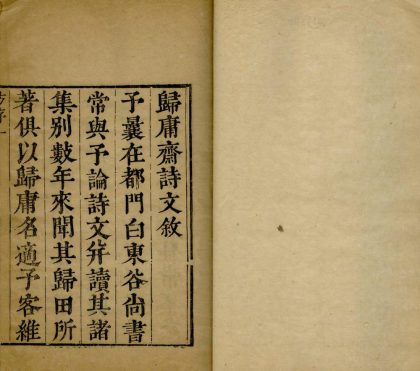 歸庸齋詩文敘
予曩在都門白東谷尚書
常與予論詩文并讀其諸
集別數年來聞其歸田所
著俱以歸庸名適予客維